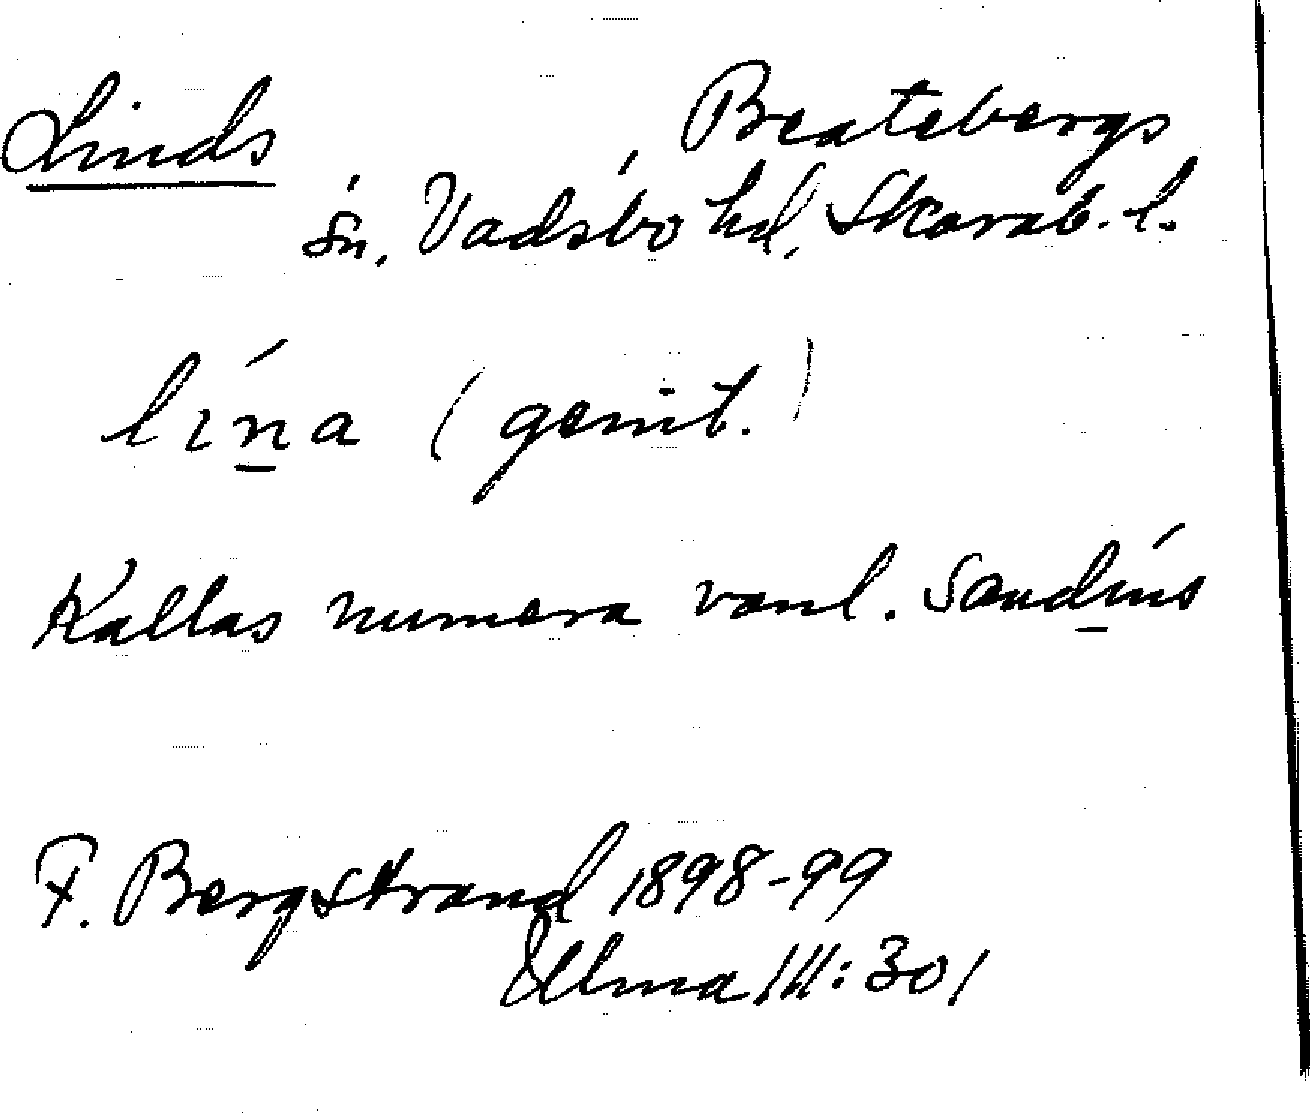 Linds Beatebergs
sn, Vadsbo hd, Skarab. l.
lı́n̲a (genit.)
Kallas numera vanl. Sandins
F. Bergstrand 1898-99
Ulma III: 301